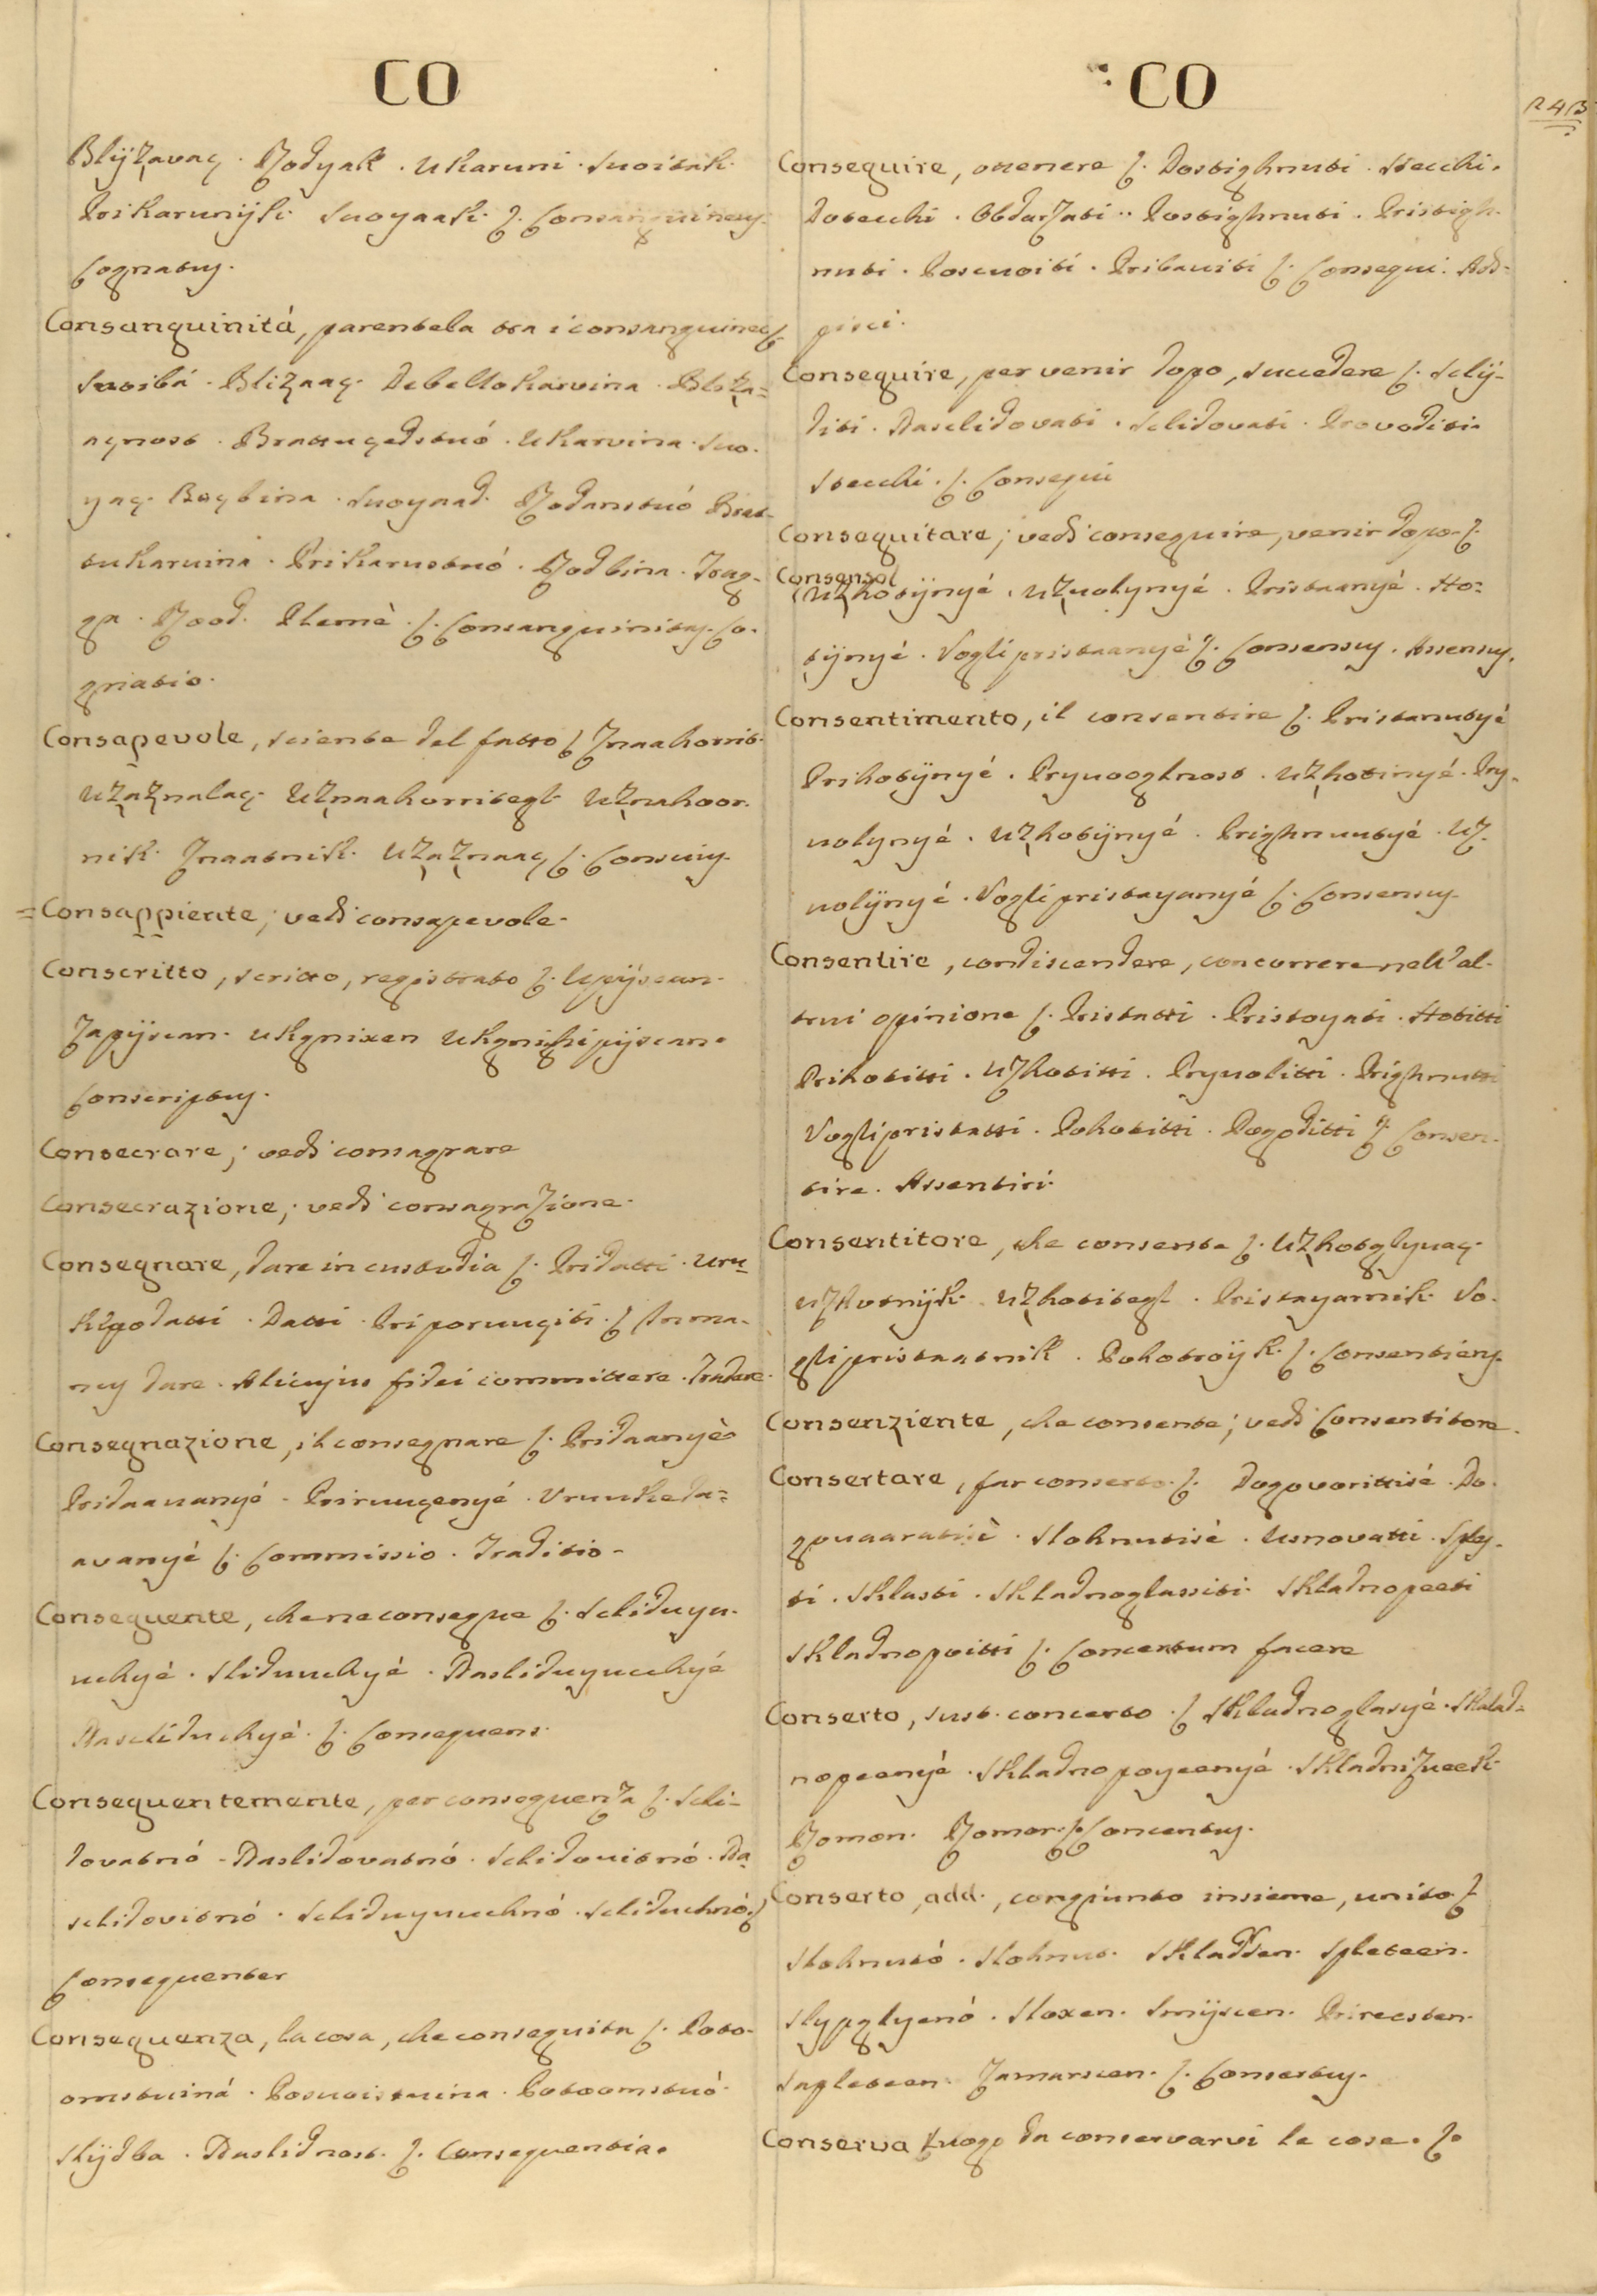 CO
Blÿẓavaç. Rodyak. ukaruni. Svoitak.
Prikarunÿk. Svoyaak. ſ. Consanguineus.
Cognatus.
Consanguinitá, parentela tra i consanguinei ſ.
Svoibá. Blizaaç. Debellokarvina. Bliẓa=
açnost. Brattuçedstvó. Ukarvina. Svo.
yaç. Boçbina. Svoynad. Rodanstvó Brat-
tukarvina. Prikarustvó. Rodbina. Trag-
ga. Rood. Plemè. ſ. Consanguinitas. Co.
gnatio.
Consapevole, sciente del fatto ſ Znaahorrit.
Uẓaẓnalaç. Uẓnaahorritegl. Uẓnahoor.
nik. Znaatnik. Uẓaẓnaaç ſ. Conscius.
=Consappiente; vedi consapevole.
Conscritto, scritto, registrato ſ. Upÿscan.
Zapÿscan. ukgnixen ukgnighipÿscan.
Conscriptus.
Consecrare; vedi consagrare
Consecrazione; vedi consagrazione.
Consegnare, dare in custodia ſ. Pridatti. uru-
kkgodatti. Datti. Priporuuçiti. ſ In ma-
nus dare. Alicujus fidei committere. Tradere.
Consegnazione, il consegnare ſ. Pridaanyè
Pridaavanyé. Priruuçenyé. Vruukeda=
avanyé ſ. Commissio. Traditio.
Conseguente, che ne consegue ſ. Sliduyu.
uchyé. Sliduuchyé. Nasliduyucchyé
Nasliduchyé. ſ. Consequens.
Conseguentemente, per conseguenza ſ. Scli-
dovatnó. Naslidovatnó. Sclidovitnó. Na-
sclidovitnó. Scliduyucchnó. Scliduchnó. ſ
Consequenter
Conseguenza, la cosa, che conseguita ſ. Poto-
omstviná. Posvoistvina. Potoomstvó.
Slÿdba. Naslidnost. ſ. Consequentia.
CO
243
Conseguire, ottenere ſ. Dostighnuti. Stecchi.
Dotecchi. Obdarzati. Postighnuti. Pristigh.
nuti. Posvoiti. Pribaviti ſ. Consequi. Adi-
pisci.
Conseguire, per venir dopo, succedere ſ. Sclÿ-
diti. Naselidovati. Sclidovati. Provoditi.
Stecchi. ſ. Consequi
Conseguitare; vedi conseguire, venir dopo. ſ.
Consensol
Uẓhotÿnyé. Uẓvolynyé. Pristaanyé. Ho=
tÿnyé. Voglipristaanyé ſ. Consensus. Assensus.
Consentimento, il consentire ſ. Pristanutyé
Prihotÿnyé. Pryvooglnost. Uẓhotinyé. Pry-
volynyé. Uẓhotÿnyé. Prighnuutyé. Uz.
volÿnyé. Voglipristayanyé ſ. Consensus.
Consentire, condiscendere, concorrere nell'al-
trui opinione ſ. Pristatti. Pristoyati. Hotitti
Prihotitti. Uzhotitti. Pryvolitti. Prighnutti
Voglipristatti. Pohotitti. Pogoditti ſ Consen-
tire. Assentiri.
Consentitore, che consente ſ. Uẓhotglyvaç.
Uzhotnÿk. Uẓhotitegl. Pristayarnik. Vo.
glipristaatnik. Pohotrojk. ſ. Consentiens.
Consenziente, che consente; vedi Consentitore.
Consertare, far conserto. ſ. Dogovorittisé. Do.
govaaratisè. Slohnutisé. Usnovatti. Sply-
ti. Sklasti. Skladnoglassiti. Skladnopeeti
Skladnopoitti ſ. Concentum facere
Conserto, sust. concerto. ſ Skladnoglasyé. Sklad-
nopeenyé. Skladnopoyeenyé. Skladnizueek.
Romon. Romor. ſ. Concentus.
Conserto, add., congiunto insieme, unito. ſ
Slohnutó. Slohnut. Skladden. Spleteen.
Slypglyenó. Sloxen. Smÿscen. Prireesten.
Sapleteen. Zamarscen. ſ. Consertus.
Conserva luogo da conservarvi le cose. ſ.